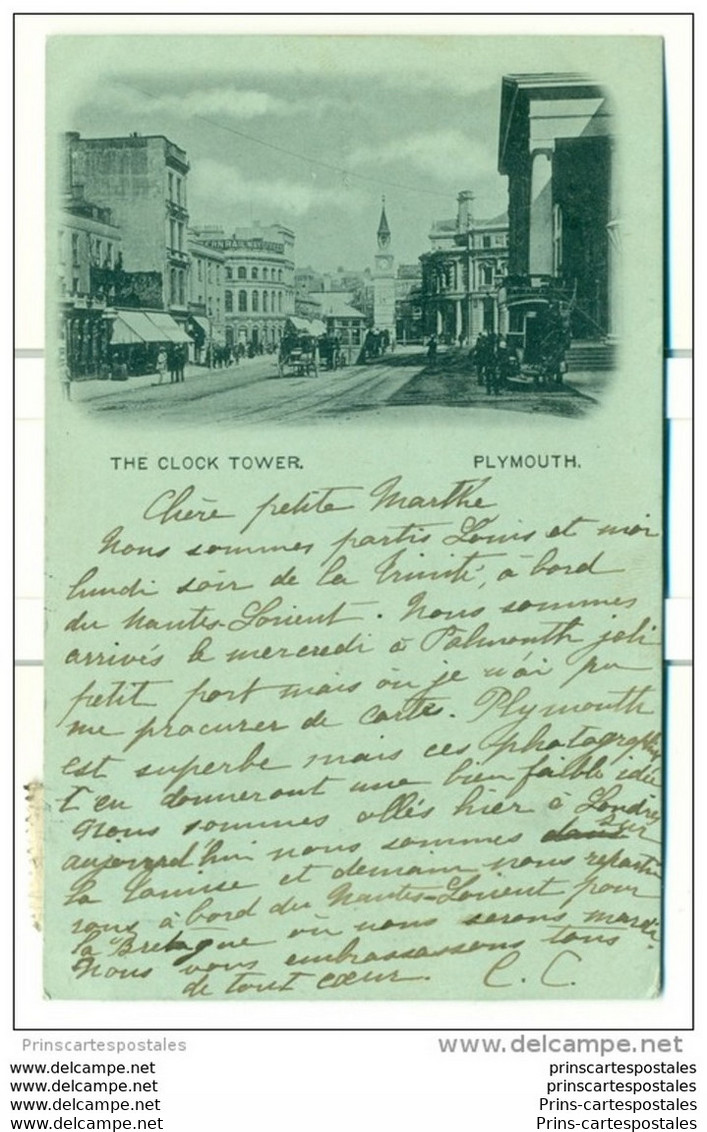 THE CLOCK TOWER. PLYMOUTH.
Chère petite Marthe
Nous sommes partis Louis et moi
lundi soir de la Trinité, à bord
du Nantes-Lorient. Nous sommes
arrivés le mercredi à Falmouth joli
petit port mais où je n'ai pu
me procurer de carte. Plymouth
est superbe mais ces photographies
t'en donneront une bien faible idée
Nous sommes allés hier à Londres
aujourd'hui nous sommes sur
la Tamise et demain nous repartirons
à bord du Nantes-Lorient pour
la Bretagne où nous serons mardi.
Nous vous embrassons tous
de tout cœur. C. C.
Prinscartespostales www.delcampe.net
www.delcampe.net prinscartespostales
www.delcampe.net prinscartespostales
www.delcampe.net Prins-cartespostales
www.delcampe.net Prins-cartespostales